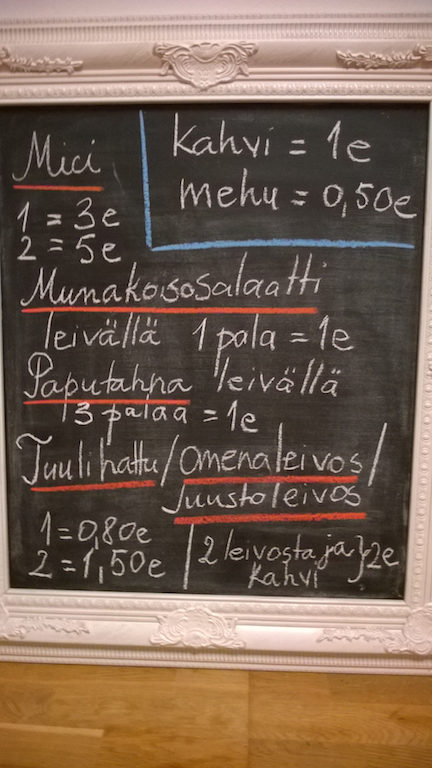 Mici
1 = 3e
2 = 5e
kahvi = 1e
mehu = 0,50e
Munakoisosalaatti
leivällä 1 pala = 1e
Paputahna leivällä
3 palaa = 1e
Tuulihattu/Omenaleivos/
Juustoleivos
1 = 0,80e
2 = 1,50e
2 leivosta ja } 2e
kahvi